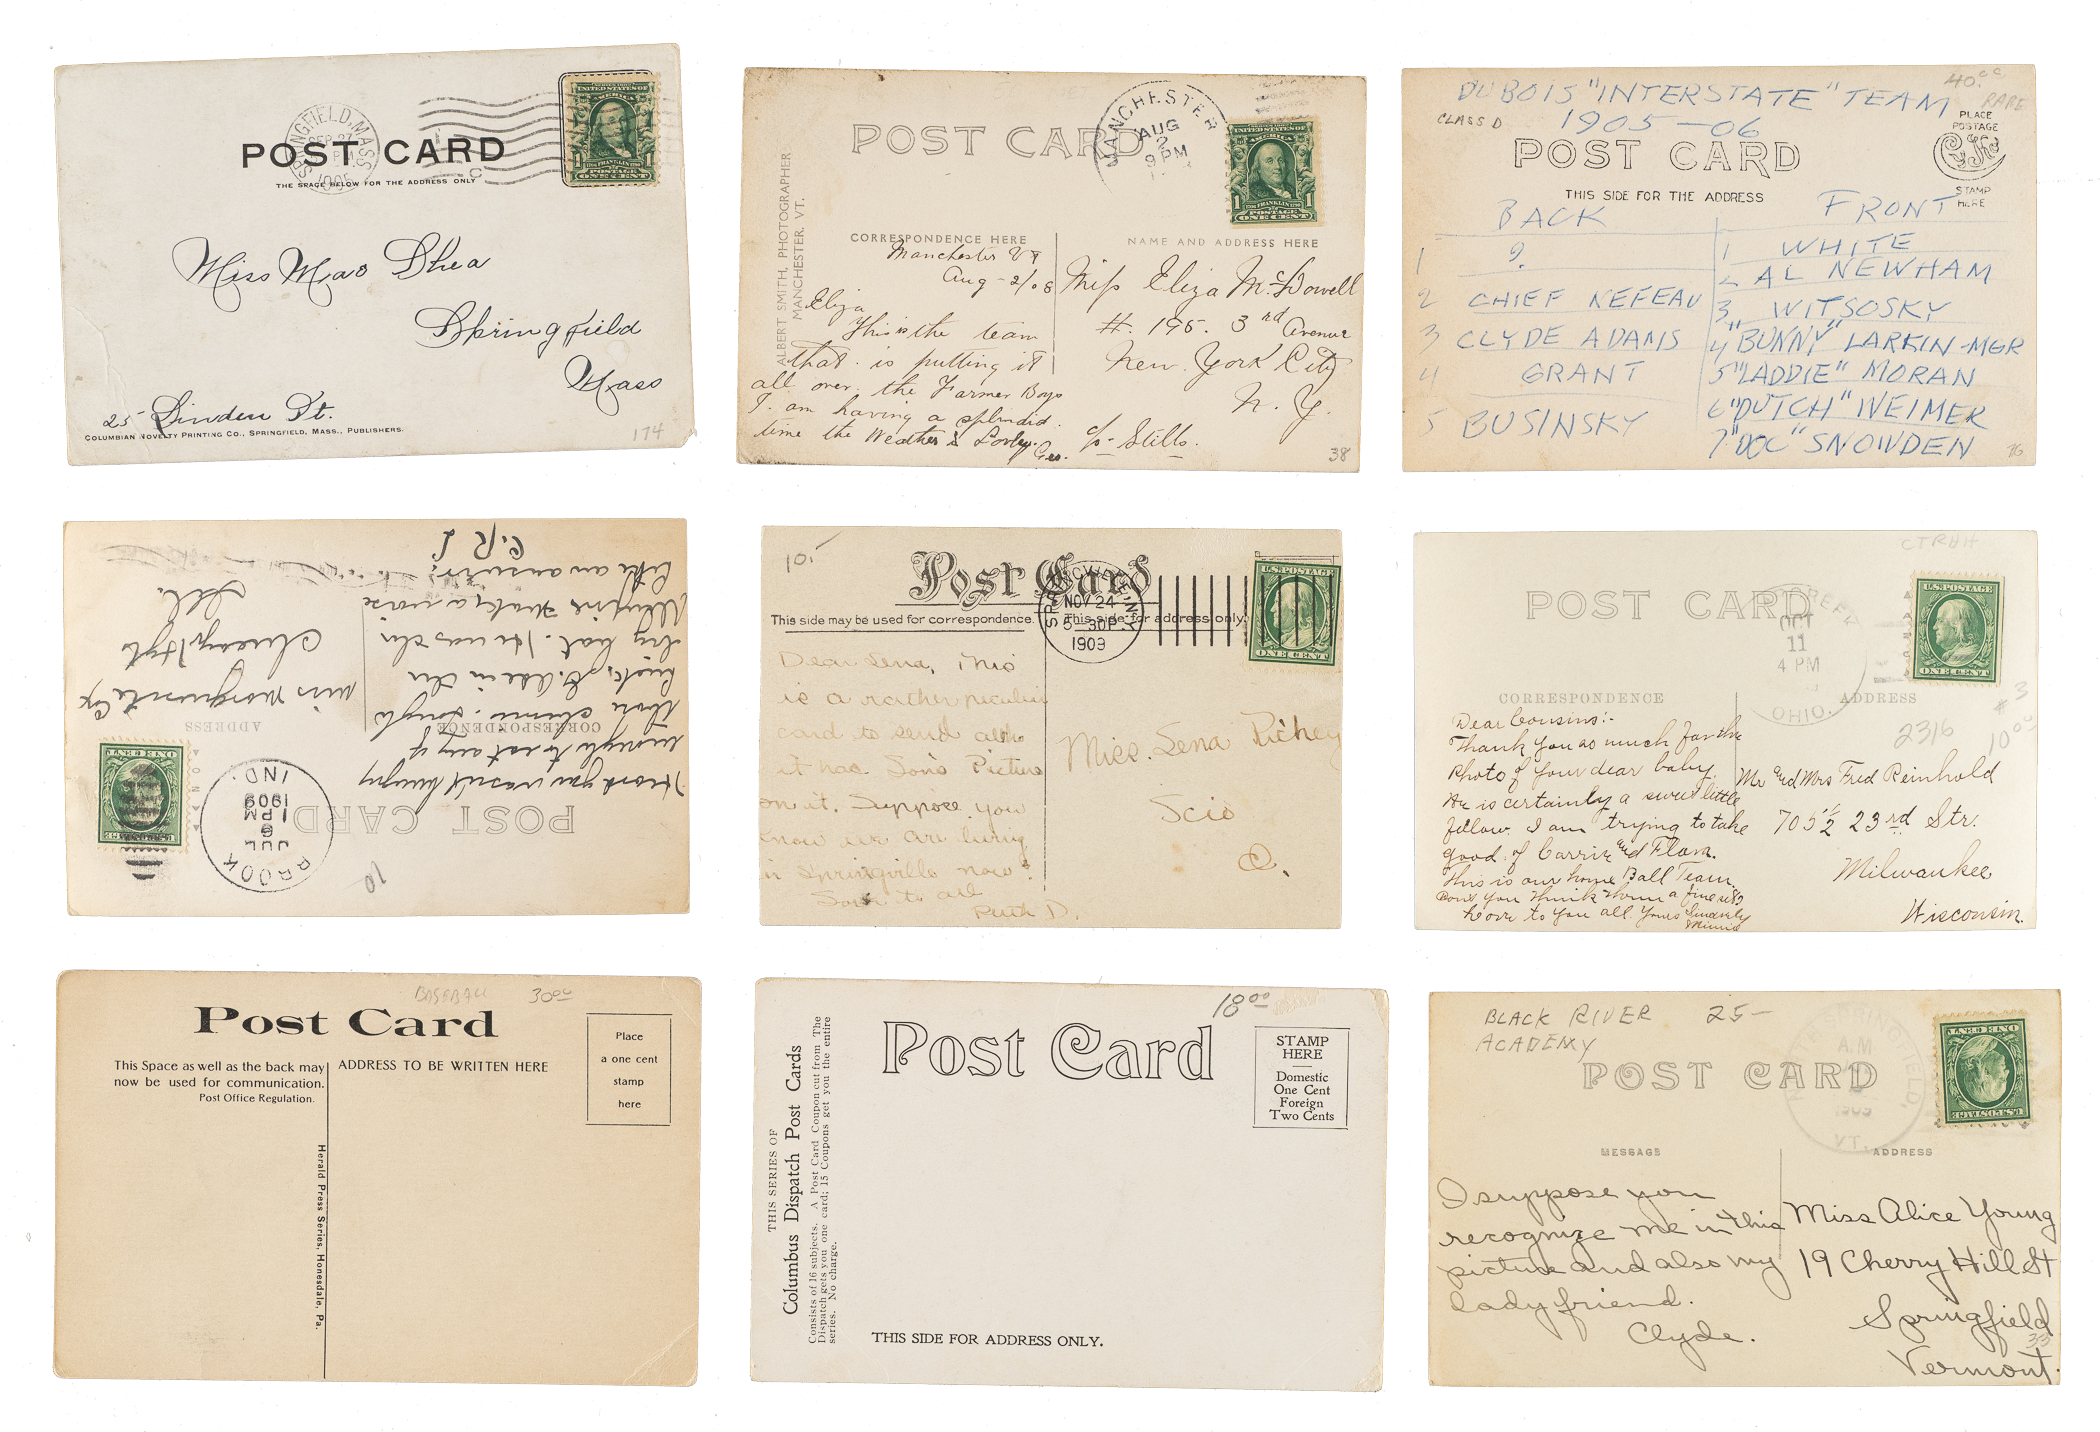 POST CARD
THE SPACE BELOW FOR THE ADDRESS ONLY
SPRINGFIELD, MASS.
SEP 27
1905
C
SERIES 1902
UNITED STATES OF
AMERICA
1 1
FRANKLIN
POSTAGE
ONE CENT
Miss Mae Shea
Springfield
Mass
25 Linden St.
COLUMBIAN NOVELTY PRINTING CO., SPRINGFIELD, MASS., PUBLISHERS.
174
POST CARD
MANCHESTER
AUG
2
9 PM
UNITED STATES OF
AMERICA
1 1
FRANKLIN
POSTAGE
ONE CENT
ALBERT SMITH, PHOTOGRAPHER
MANCHESTER, VT.
CORRESPONDENCE HERE
NAME AND ADDRESS HERE
Manchester Vt
Aug - 2/08
Eliza
This is the team
that is putting it
all over the Farmer Boys
I am having a splendid
time the Weather is Lovely.
Geo.
Miss Eliza McDowell
#. 195. 3rd Avenue
New York City
N. Y.
c/o Stills.
38
DUBOIS "INTERSTATE" TEAM
CLASS D
1905-06
40.00
RARE
POST CARD
PLACE
POSTAGE
STAMP
HERE
THIS SIDE FOR THE ADDRESS
BACK
1 ?
2 CHIEF NEFEAU
3 CLYDE ADAMS
4 GRANT
5 BUSINSKY
FRONT
1 WHITE
2 AL NEWHAM
3 WITSOSKY
4 "BUNNY" LARKIN-MGR
5 "LADDIE" MORAN
6 "DUTCH" WEIMER
7 "DOC" SNOWDEN
76
POST CARD
BROOK
JUL
6
1 PM
1909
IND.
U.S. POSTAGE
ONE CENT
CORRESPONDENCE
ADDRESS
I hope you wasn't hungry
enough to eat any of
those
in the
hat. He was the
Umpire. Make a noise
like an answer.
C.R.L.
Miss Marguerite Cox
Sheridan
Ill.
10
10.-
Post Card
This side may be used for correspondence.
This side for address only.
SPRINGVILLE N.Y.
NOV 24
5-30P
1909
U.S. POSTAGE
ONE CENT
Dear Lena, This
is a rather peculiar
card to send also
it has Son's Picture
on it. Suppose you
know we are living
in Springville now?
Love to all
Ruth D.
Miss. Lena Richey
Scio
O.
CTRHH
POST CARD
OCT
11
4 PM
OHIO.
U.S. POSTAGE
ONE CENT
#3
2316
10.00
CORRESPONDENCE
ADDRESS
Dear Cousins:-
Thank you so much for the
Photo of your dear baby.
He is certainly a sweet little
fellow. I am trying to take
good of Carrie and Flora.
This is our home Ball Team.
Dont you think them a fine set?
Love to you all. Yours Sincerely
Minnie
Mr and Mrs Fred Reinhold
705½ 23rd Str.
Milwaukee
Wisconsin.
BASEBALL 30.00
Post Card
This Space as well as the back may
now be used for communication.
Post Office Regulation.
ADDRESS TO BE WRITTEN HERE
Place
a one cent
stamp
here
Herald Press Series, Honesdale, Pa.
18.00
Post Card
STAMP
HERE
Domestic
One Cent
Foreign
Two Cents
THIS SERIES OF
Columbus Dispatch Post Cards
Consists of 16 subjects. A Post Card Coupon cut from The
Dispatch gets you one card; 15 Coupons get you the entire
series. No charge.
THIS SIDE FOR ADDRESS ONLY.
BLACK RIVER
ACADEMY
25-
POST CARD
NORTH SPRINGFIELD,
A.M
1909
VT.
U.S. POSTAGE
ONE CENT
MESSAGE
ADDRESS
I suppose you
recognize me in this
picture and also my
lady friend.
Clyde.
Miss Alice Young
19 Cherry Hill St
Springfield
Vermont.
33